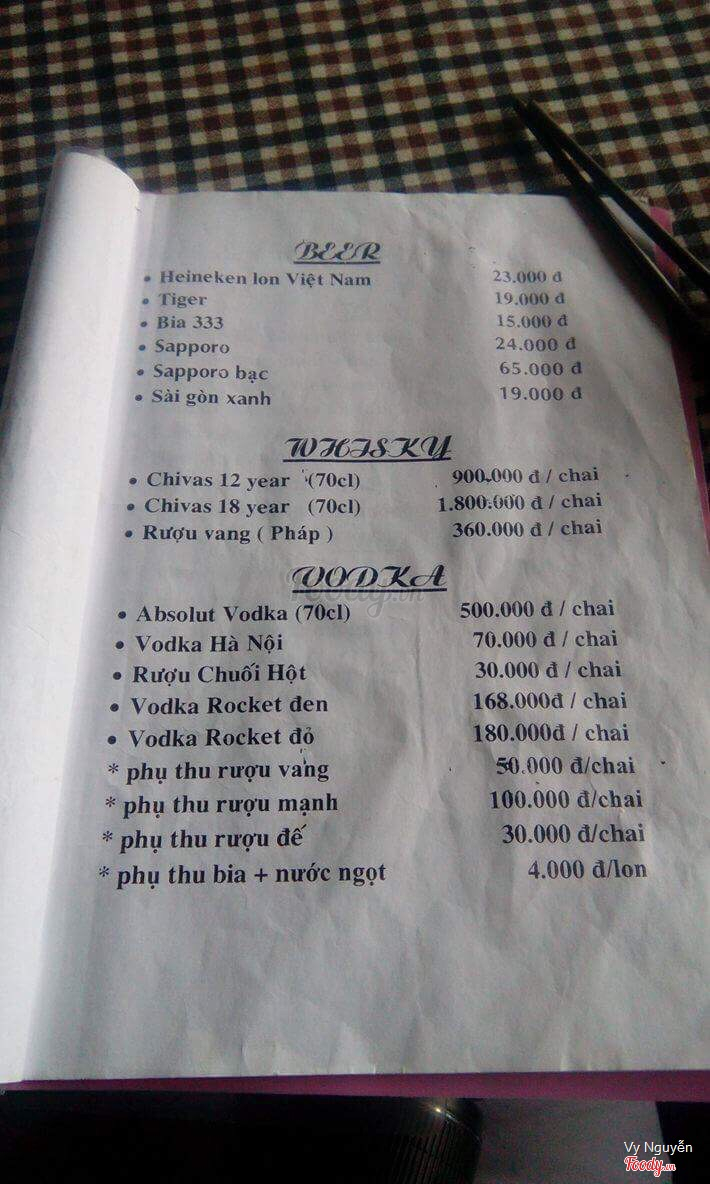 BEER
• Heineken lon Việt Nam 23.000 đ
• Tiger 19.000 đ
• Bia 333 15.000 đ
• Sapporo 24.000 đ
• Sapporo bạc 65.000 đ
• Sài gòn xanh 19.000 đ
WHISKY
• Chivas 12 year (70cl) 900.000 đ / chai
• Chivas 18 year (70cl) 1.800.000 đ / chai
• Rượu vang ( Pháp ) 360.000 đ / chai
VODKA
Foody.vn
• Absolut Vodka (70cl) 500.000 đ / chai
• Vodka Hà Nội 70.000 đ / chai
• Rượu Chuối Hột 30.000 đ / chai
• Vodka Rocket đen 168.000đ / chai
• Vodka Rocket đỏ 180.000đ / chai
* phụ thu rượu vang 50.000 đ/chai
* phụ thu rượu mạnh 100.000 đ/chai
* phụ thu rượu đế 30.000 đ/chai
* phụ thu bia + nước ngọt 4.000 đ/lon
Vy Nguyễn
Foody.vn